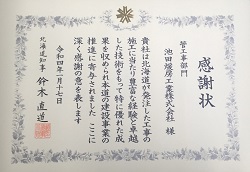 感謝状
管工事部門
池田煖房工業株式会社 様
貴社は北海道が発注した工事の
施工に当たり豊富な経験と卓越
した技術をもって特に優れた成
果を収められ本道の建設事業の
推進に寄与されました ここに
深く感謝の意を表します
令和四年一月十七日
北海道知事 鈴木直道